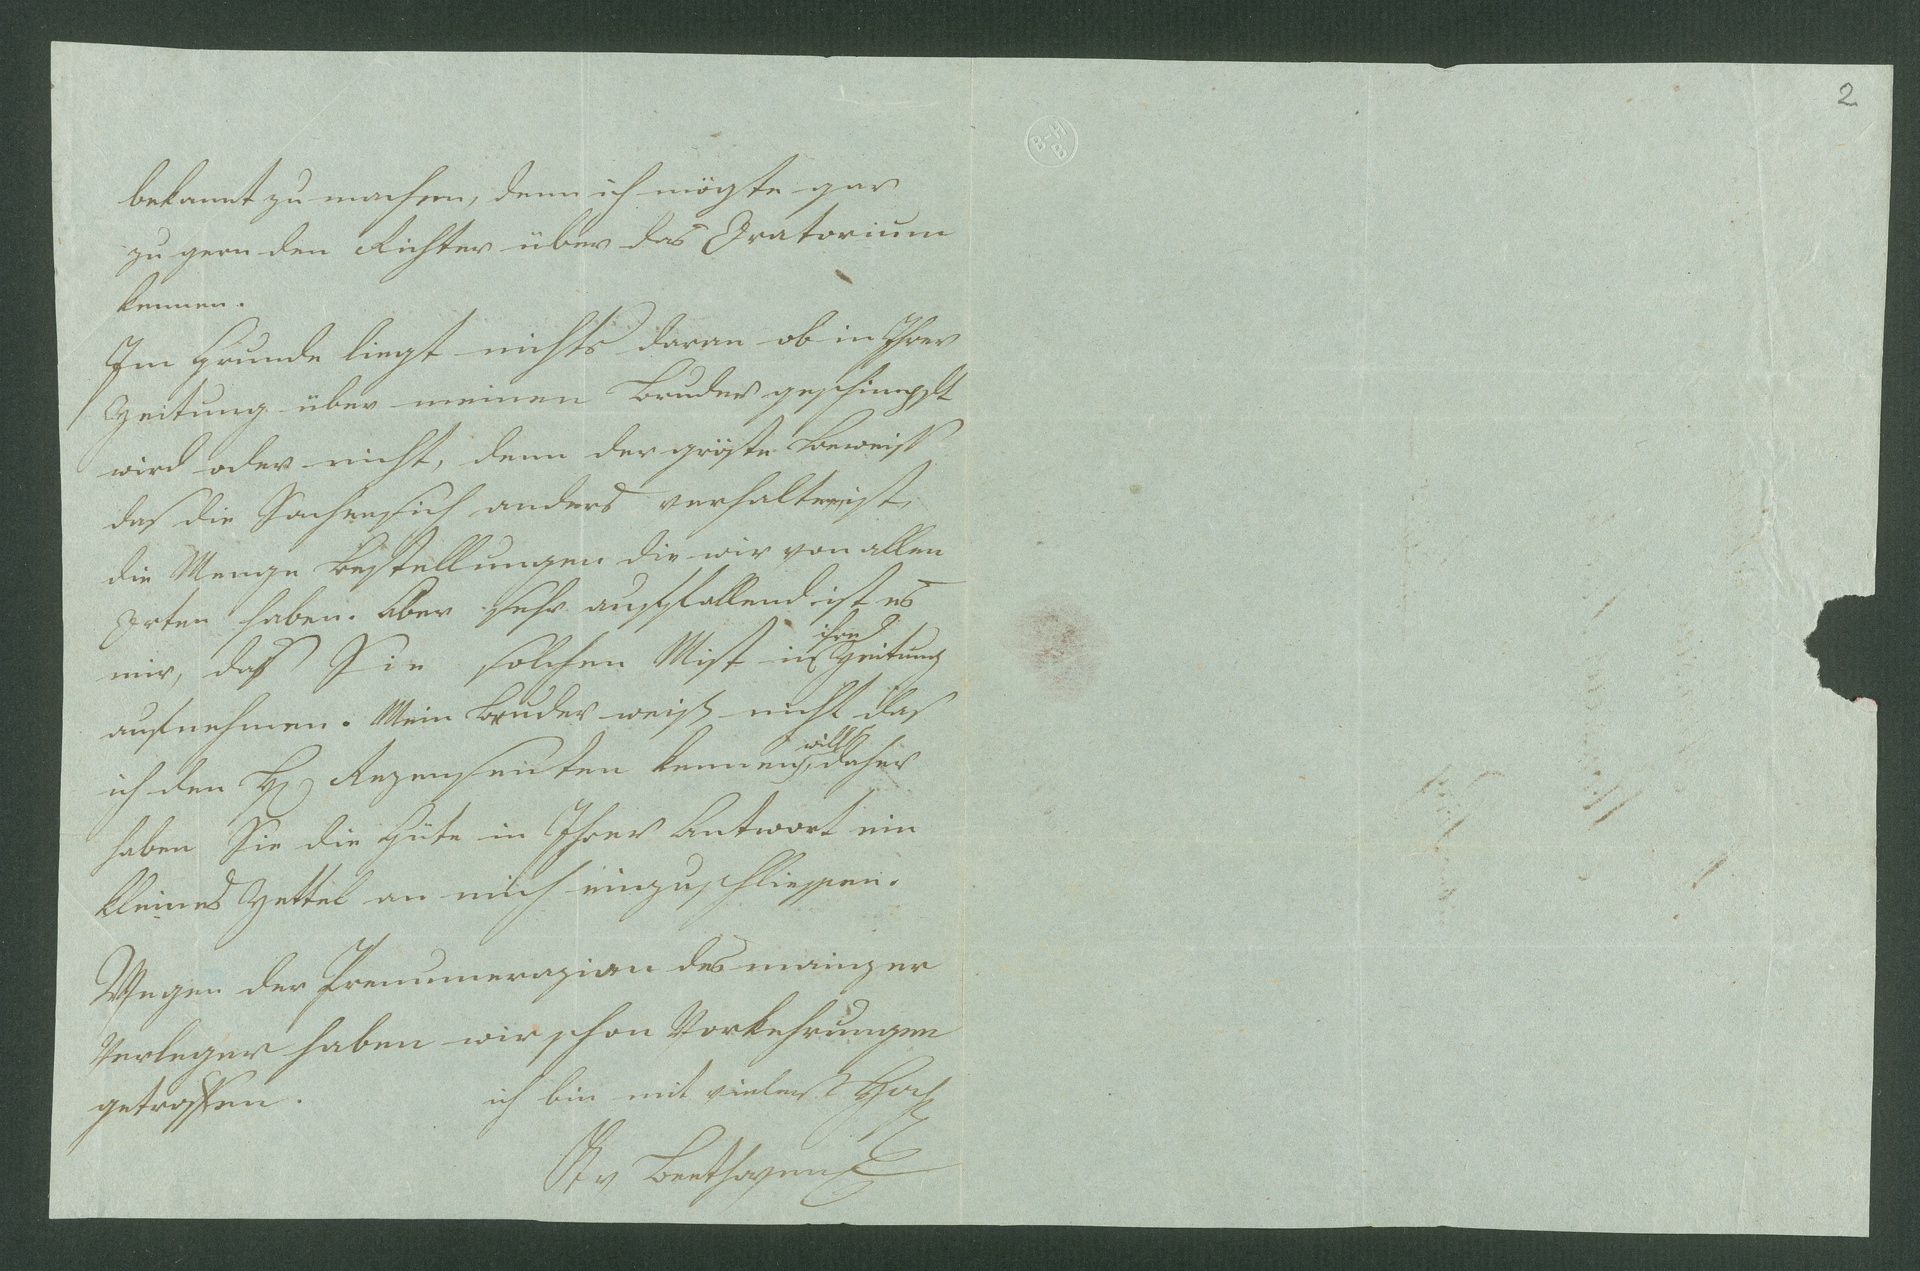 2
B-H
B
bekannt zu machen, denn ich mögte gar
zu gern den Richter über das Oratorium
kennen.
Im Grunde liegt nichts daran ob in Ihrer
Zeitung über meinen Bruder geschimpft
wird oder nicht, denn der gröste Beweiß
das die Sachen sich anders verhalten ist,
die Menge Bestellungen die wir von allen
Orten haben. Aber sehr auffallend ist es
mir, daß Sie solchen Mist in ihre Zeitung
aufnehmen. Mein Bruder weiß nicht das
ich den H Rezensenten kennen will, daher
haben Sie die Güte in Ihrer Antwort ein
kleines Zettel an mich einzuschliessen.
Wegen der Prenumerazion des mainzer
Verleger haben wir schon Vorkehrungen
getroffen. ich bin mit vieler Hoch
v Beethoven